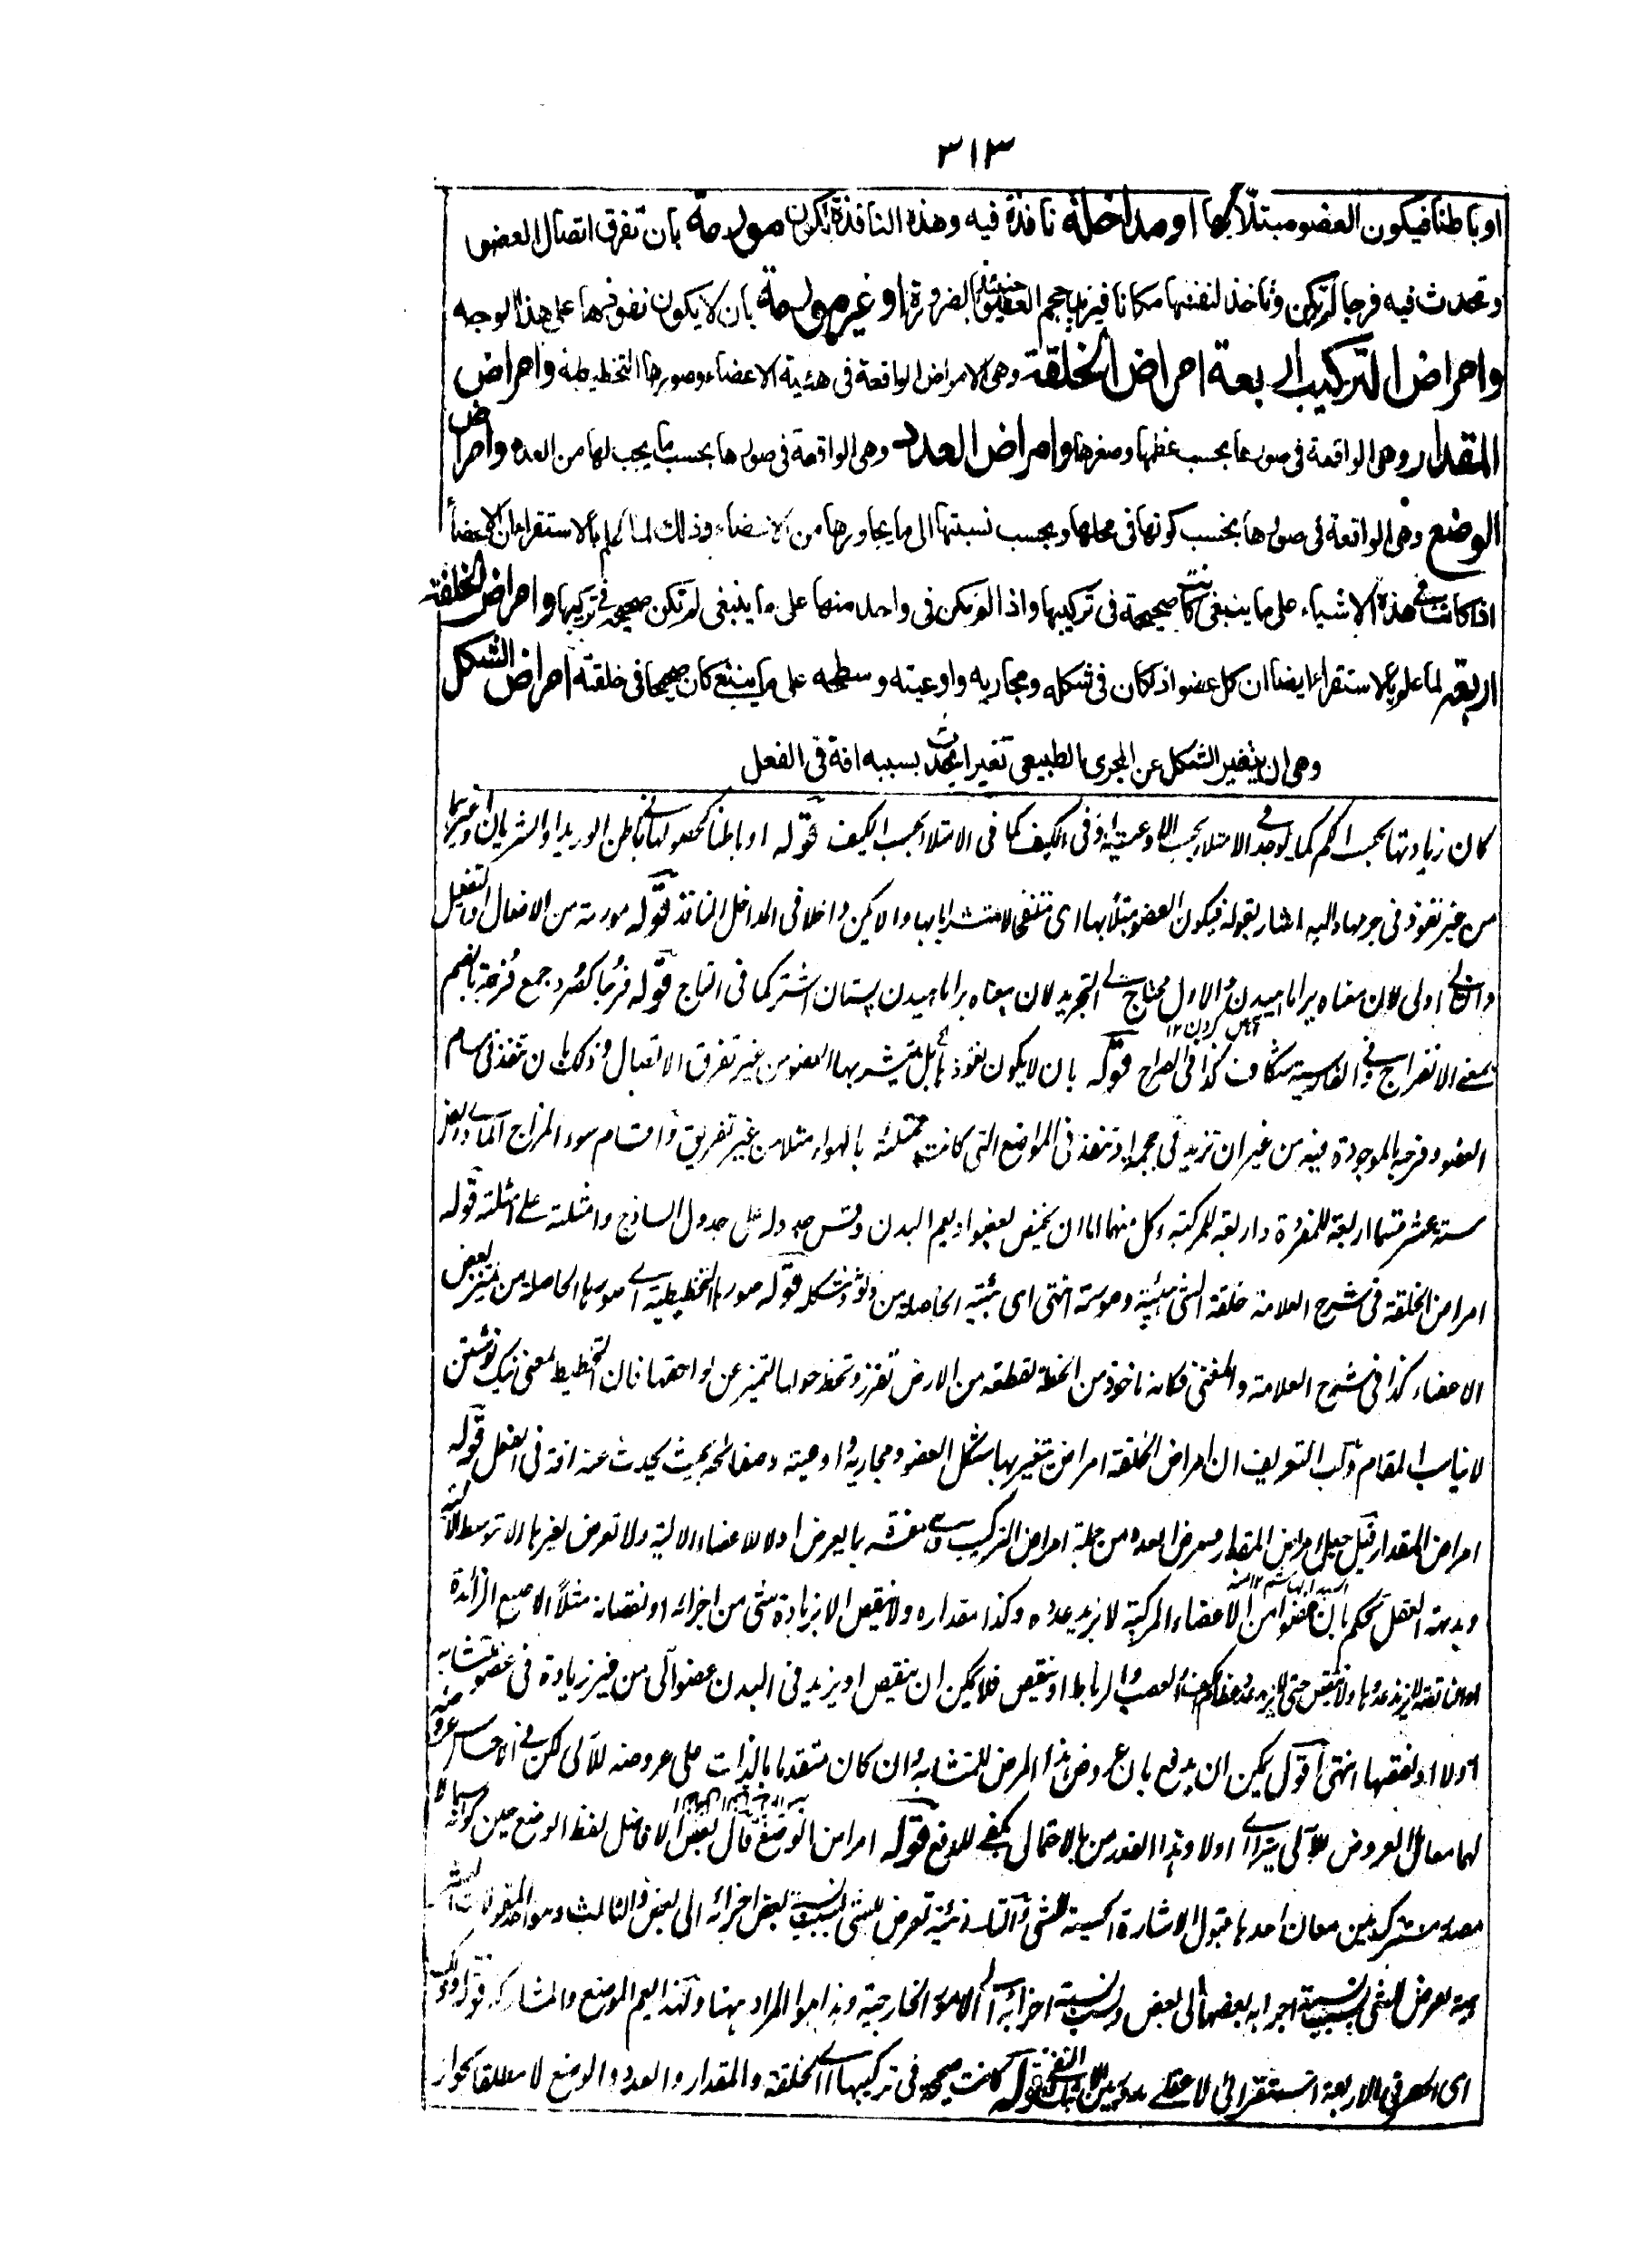 ٣١٣
او باطنا فيكون العضو مبتلّا بها او مداخلة نافذة فيه وهذه النافذة اما ان تكون مورمة بان تفرق اتصال العضو
وتحدث فيه فرجا لم تكن وتاخذ لنفسها مكانا فيزيد حجم العضو حينئذ بالضرورة او غير مورمة بان لا يكون نفوذها على هذا الوجه
وامراض التركيب اربعة امراض الخلقة وهى الامراض الواقعة فى هيئة الاعضاء وصورها التخطيطية وامراض
المقدار وهى الواقعة فى صورها بحسب عظمها وصغرها وامراض العدد وهى الواقعة فى صورها بحسب ما يجب لها من العدد وامراض
الوضع وهى الواقعة فى صورها بحسب كونها فى محلها وبحسب نسبتها الى ما يجاورها من الاعضاء وذلك لما علم بالاستقراء ان الاعضاء
اذا كانت فى هذه الاشياء على ما ينبغى كانت صحيحة فى تركيبها واذا لم يكن فى واحد منها على ما ينبغى لم تكن صحيحة فى تركيبها وامراض الخلقة
اربعة لما علم بالاستقراء ايضا ان كل عضو اذا كان فى شكله ومجاريه واوعيته وسطحه على ما ينبغى كان صحيحا فى خلقته امراض الشكل
وهى ان يتغير الشكل عن المجرى الطبيعى تغيرا يحدث بسببه افة فى الفعل
كان زيادتها بحسب الكم كما يوجد فى الامتلاء بحسب الاوعية او فى الكيف كما فى الامتلاء بحسب الكيف قوله او باطنا كحصولها فى باطن الوريد او الشريان وغيرهما
من غير نفوذ فى جرمها واليه اشار بقوله فيكون العضو مبتلّا بها اى منتفخا لا متشربا بها والا لكان داخلا فى المداخل النافذ قوله مورمة من الافعال او التفعيل
والثانى اولى لان معناه برآماهيدن والاول محتاج الى التجريد لان معناه برآماهيدن پستان اشتر كما فى التاج قوله فرجا كصرد جمع فرجة بالضم
بمعنى الانفراج وفى الفارسية شگاف كذا فى الصراح قوله بان لا يكون نفوذها بل يتشرب بها العضو من غير تفرق الاتصال وذلك بان تنفذ فى مسام
العضو وفرجه الموجودة فيه من غير ان تزيد فى حجمه او تنفذ فى المواضع التى كانت ممتلئة بالهواء مثلا من غير تفريق واقسام سوء المزاج المادى ايضا
ستة عشر قسما اربعة للمفردة واربعة للمركبة وكل منهما اما ان يختص بعضو او يعم البدن وقس جدوله على جدول الساذج وامثلته على امثلته قوله
امراض الخلقة فى شرح العلامة خلقة الشئ هيئته وصورته انتهى اى هيئته الحاصلة من لونه وشكله قوله صورها التخطيطية اى صورها الحاصلة من تميز بعض
الاعضاء كذا فى شرح العلامة والمغنى فكانه ماخوذ من الخطة لقطعة من الارض تفرز وتخط حولها لتتميز عن لواحقها فان التخطيط بمعنى نيك نوشتن
لا يناسب المقام ذلك التعريف ان امراض الخلقة امراض تتغير بها شكل العضو ومجاريه او اوعيته وصفائحه بحيث يحدث عنه افة فى الفعل قوله
امراض المقدار قيل جعل امراض المقدار ومرض العدد من جملة امراض التركيب وهى مفسرة بما يعرض اولا للاعضاء الالية ولا تعرض لغيرها الا بتوسط الالية
وبديهة العقل تحكم بان عضوا من الاعضاء المركبة لا يزيد عدده وكذا مقداره ولا ينقص الا بزيادة شئ من اجزائه او نقصانه مثلاً الاصبع الزائدة
او الناقصة لا يزيد عددها ولا ينقص حتى لا يزيد عدد العظم والعصب والرباط او ينقص فلا يمكن ان ينقص او يزيد فى البدن عضو آلى من غير زيادة فى عضو متشابه
اولا او نقصها انتهى اقول يمكن ان يدفع بان عروض هذا المرض للمتشابه وان كان متقدما بالذات على عروضه للآلى لكن فى الاحساس عروضه
لهما معا بل العروض للآلى يترا اى اولا وهذا القدر من الاحتمال يكفى للدفع قوله امراض الوضع قال بعض الافاضل لفظ الوضع حين كونه اسما لا
مصدرا مشترك بين معان احدها قبول الاشارة الحسية للشئ والثانى هيئة تعرض للشئ بسبب نسبة بعض اجزائه الى بعض والثالث وهو احد المقولات العشر
هيئة تعرض للشئ بسبب نسبة اجزائه بعضها الى بعض وبسبب نسبة اجزائه الى الامور الخارجية وهذا هو المراد ههنا ولهذا يعم الموضع والمشارك قوله وذلك
اى الحصر فى الاربعة استقرائى لا عقلى قوله كانت صحيحة فى تركيبها اى الخلقة والمقدار والعدد والوضع لا مطلقا لجواز